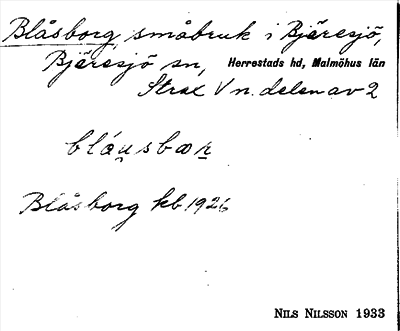 Blåsborg, småbruk i Bjäresjö,
Bjäresjö sn, Herrestads hd, Malmöhus län
Strax V n. delen av 2
Blåsborg kb. 1926
NILS NILSSON 1933